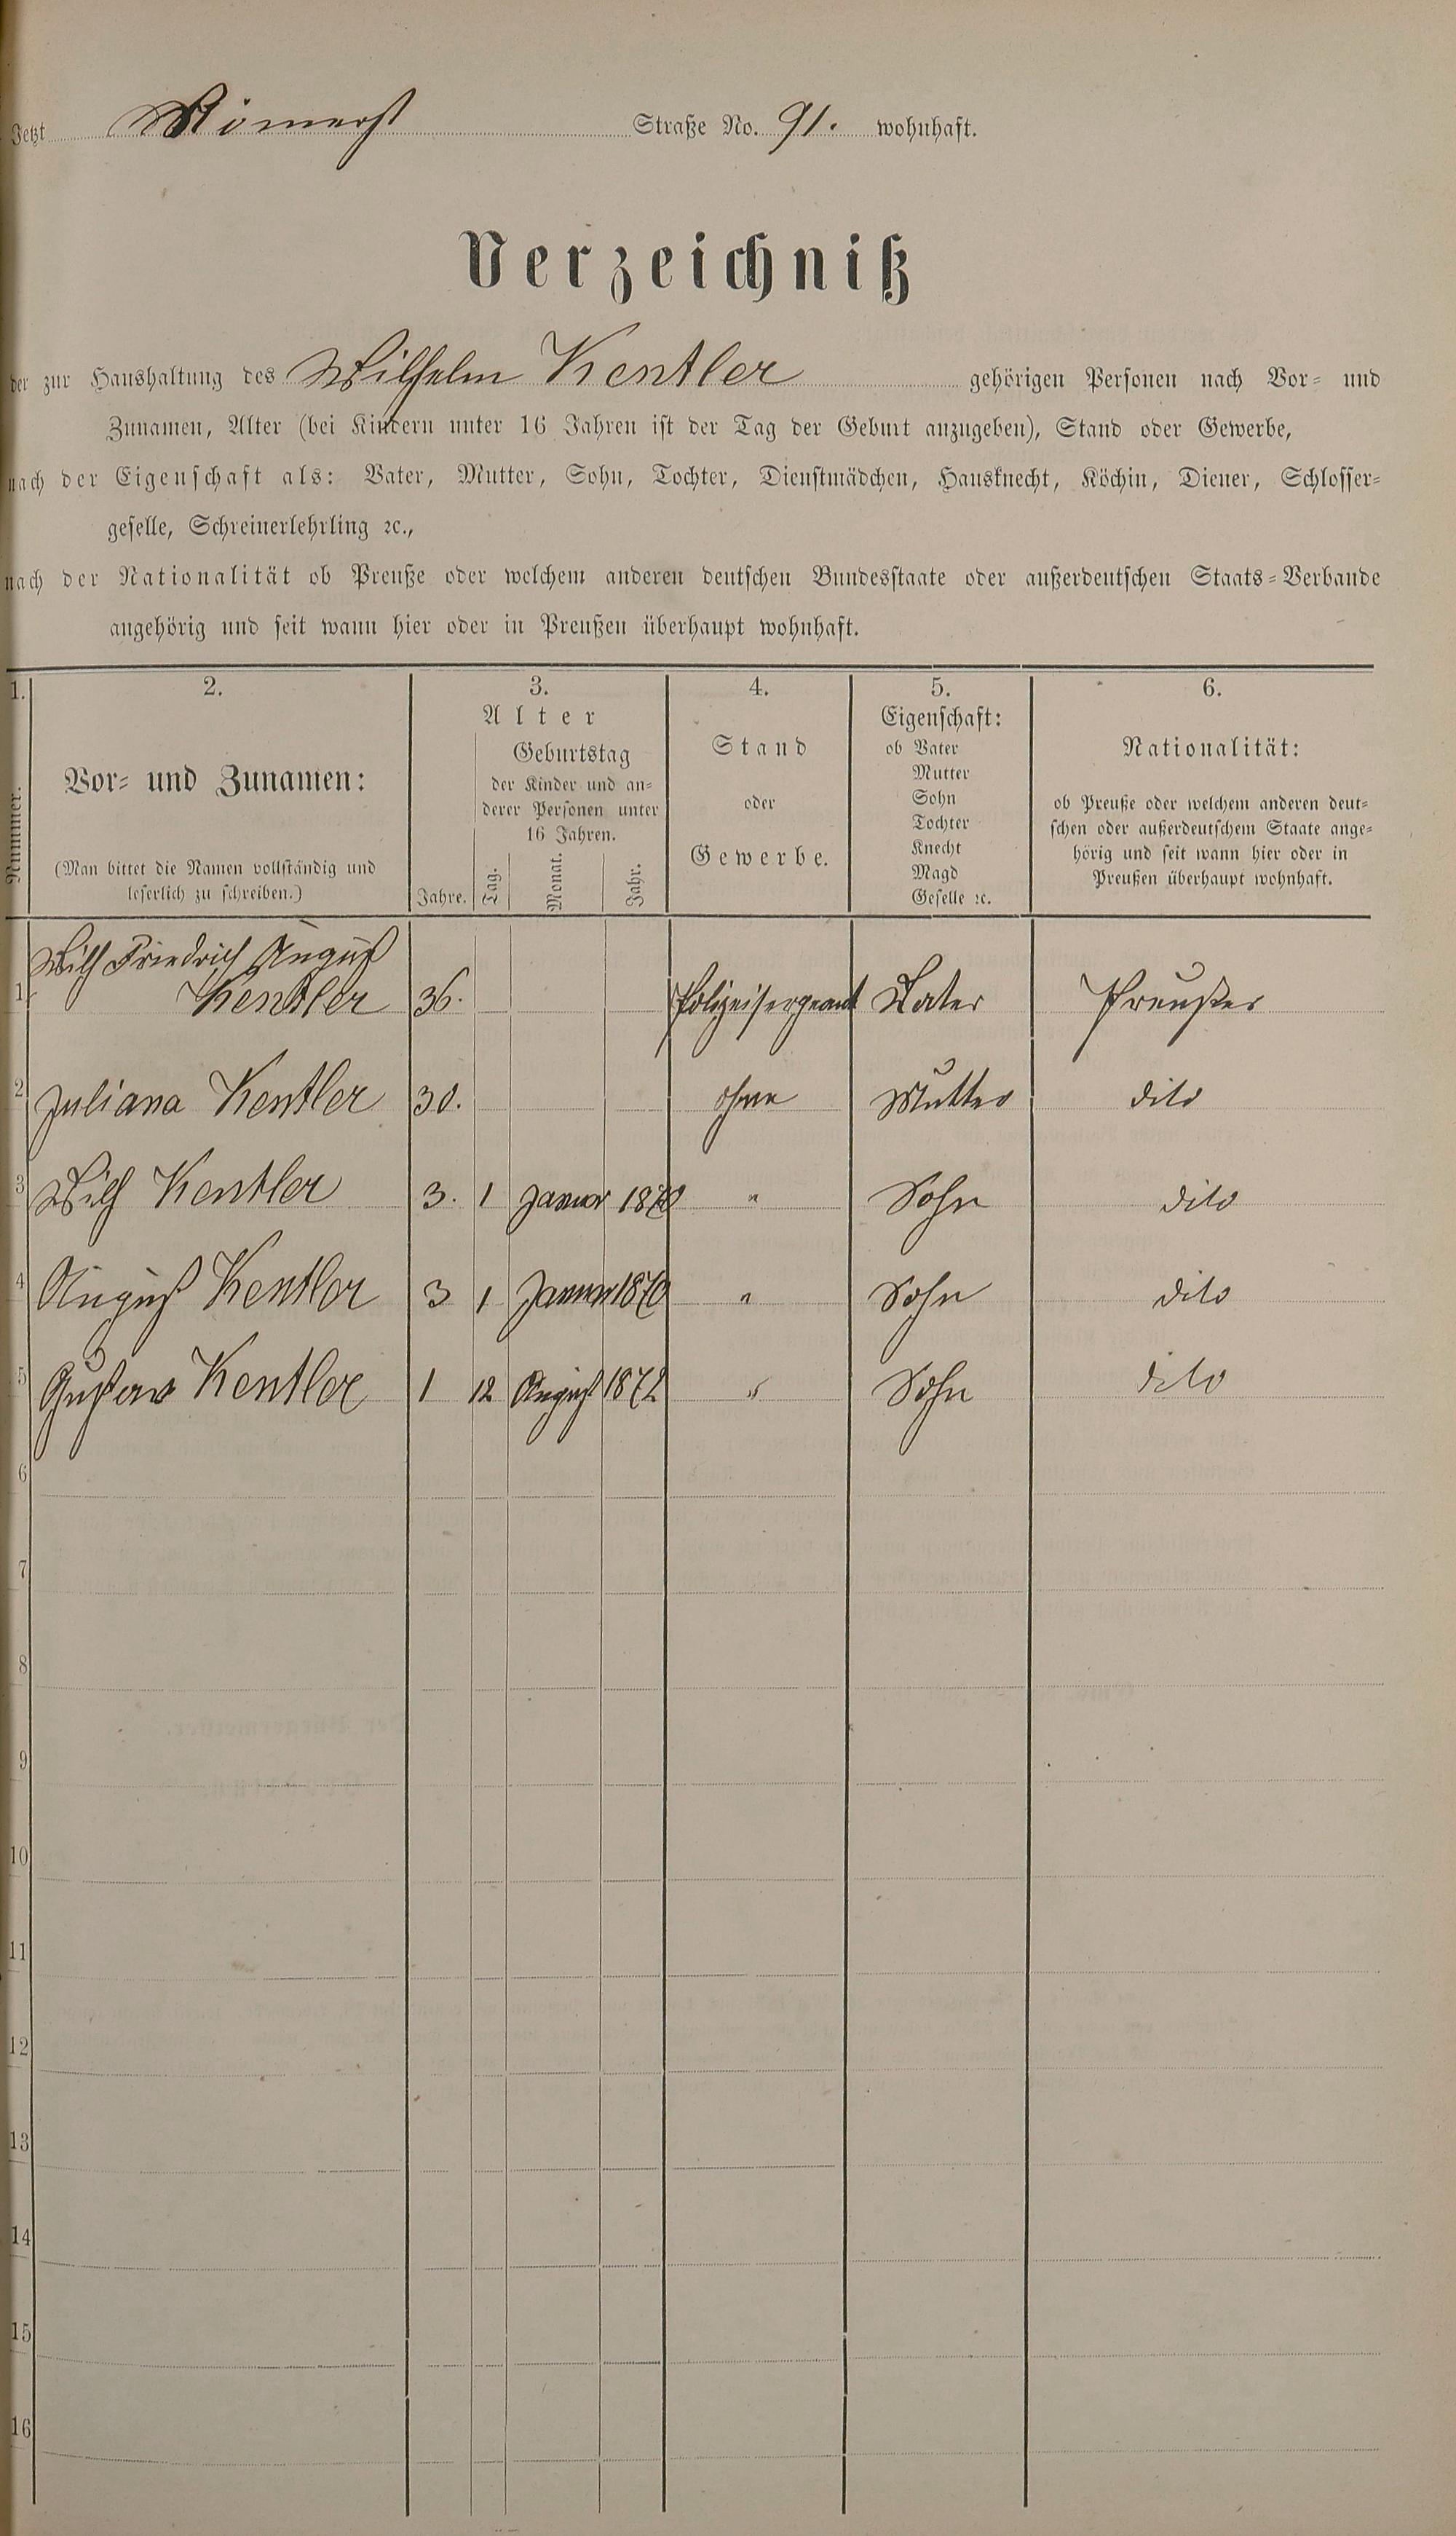 Jetzt Römerst Straße No. 91. wohnhaft.
Verzeichniß
der zur Haushaltung des Wilhelm Kentler gehörigen Personen nach Vor- und
Zunamen, Alter (bei Kindern unter 16 Jahren ist der Tag der Geburt anzugeben), Stand oder Gewerbe,
nach der Eigenschaft als: Vater, Mutter, Sohn, Tochter, Dienstmädchen, Hausknecht, Köchin, Diener, Schlosser-
geselle, Schreinerlehrling ꝛc.,
nach der Nationalität ob Preuße oder welchem anderen deutschen Bundesstaate oder außerdeutschen Staats-Verbande
angehörig und seit wann hier oder in Preußen überhaupt wohnhaft.
1. 2. 3. 4. 5. 6.
Nummer.
Vor- und Zunamen:
(Man bittet die Namen vollständig und
leserlich zu schreiben.)
Alter
Geburtstag
der Kinder und an-
derer Personen unter
16 Jahren.
Jahre. Tag. Monat. Jahr.
Stand
oder
Gewerbe.
Eigenschaft:
ob Vater
Mutter
Sohn
Tochter
Knecht
Magd
Geselle ꝛc.
Nationalität:
ob Preuße oder welchem anderen deut-
schen oder außerdeutschem Staate ange-
hörig und seit wann hier oder in
Preußen überhaupt wohnhaft.
Wilh Friedrich August
1 Kentler 36. Polizeisergeant Vater Preußer
2 Juliana Kentler 30. ohne Mutter dito
3 Wilh Kentler 3. 1 Januar 1870 " Sohn dito
4 August Kentler 3 1 Januar 1870 " Sohn dito
5 Gustav Kentler 1 12 August 1872 " Sohn dito
6
7
8
9
10
11
12
13
14
15
16